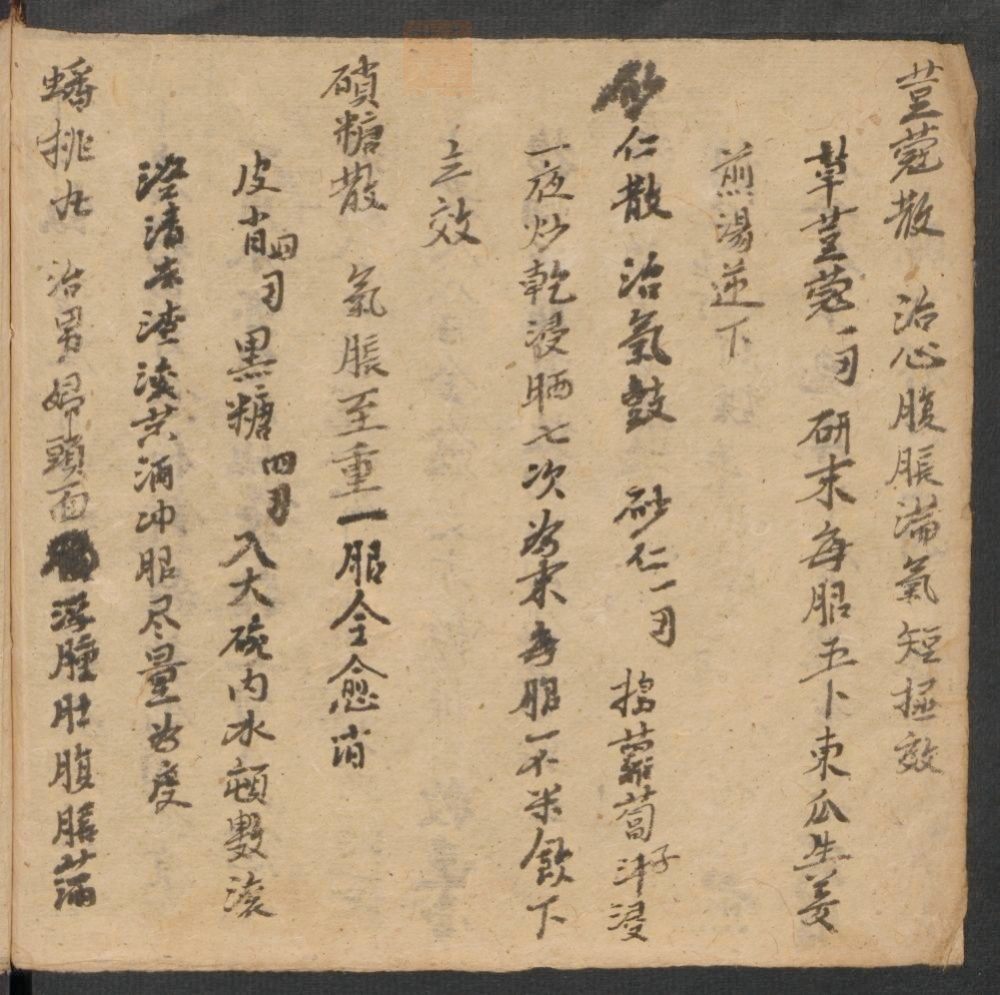 荳蔻散 治心腹脹滿氣短極效
草荳蔻一刄研末每服五卜東瓜生姜
煎湯送下
砂仁散 治氣鼓 砂仁一刄 搗蘿蔔子汁浸
一夜炒乾浸晒七次為末每服一不米飲下
立效
硝糖散 氣脹至重一服全愈消
皮肖四刄黑糖四刄入大碗内水頓數滚
澄清去渣淡黄酒冲服尽量為度
蟠桃丸 治男婦頭面浮腫肚腹膨滿